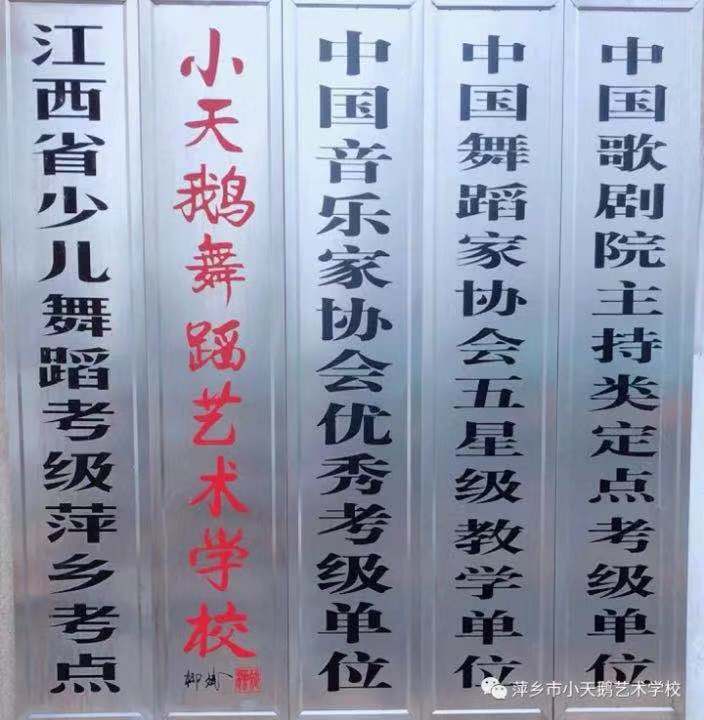 江西省少儿舞蹈考级萍乡考点
小天鹅舞蹈艺术学校
中国音乐家协会优秀考级单位
中国舞蹈家协会五星级教学单位
中国歌剧院主持类定点考级单位
萍乡市小天鹅艺术学校